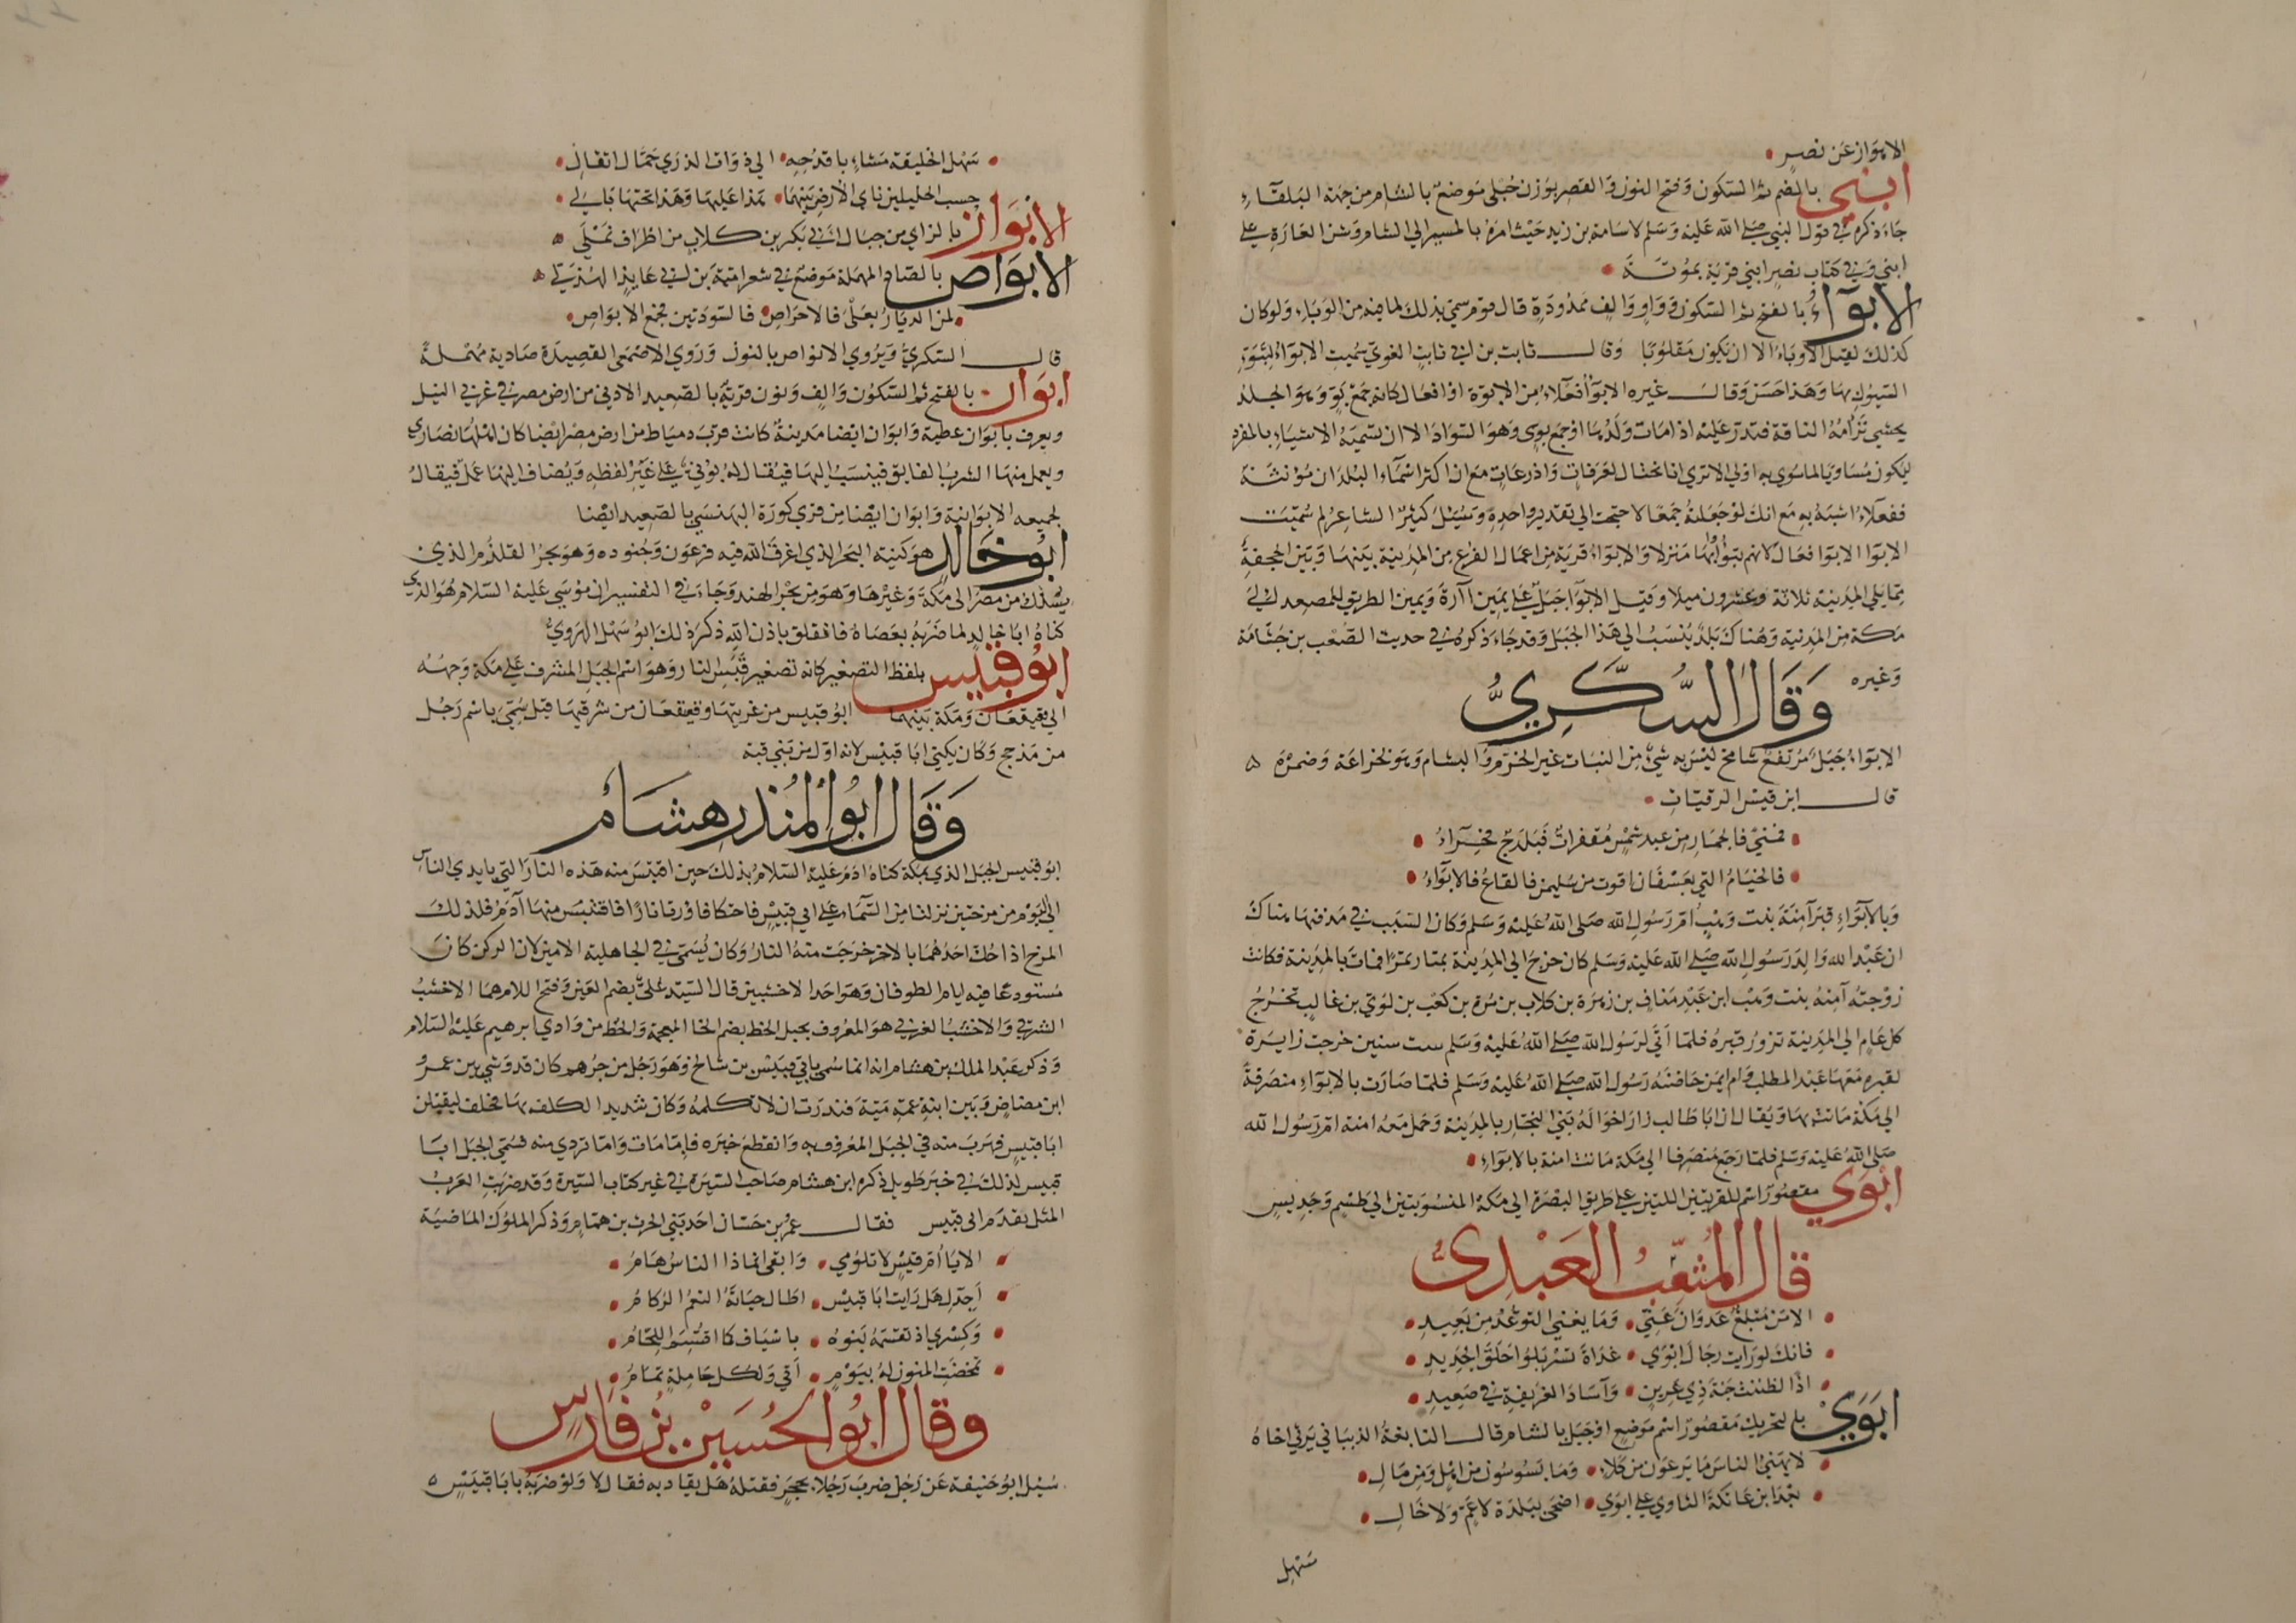 الابواز عن نصر
ابنى بالضم ثم السكون وفتح النون والقصر بوزن حبلى موضع بالشام من جهة البلقاء
جاء ذكره في قول النبي صلى الله عليه وسلم لاسامة بن زيد حيث امره بالمسير الى الشام وشن الغارة على
ابنى وفي كتاب نصر ابنى قرية بموتة
الابواء بالفتح ثم السكون وواو والف ممدودة قال قوم سمي بذلك لما فيه من الوباء ولو كان
كذلك لقيل الاوباء الا ان يكون مقلوبا وقال ثابت بن ابي ثابت اللغوي سميت الابواء لتبوء
السيول بها وهذا حسن وقال غيره الابواء فعلاء من الابوة او افعال كانه جمع بو وهو الجلد
يحشى ترامه الناقة فتدر عليه اذا مات ولدها او جمع بوى وهو السواد الا ان تسمية الاشياء بالمفرد
ليكون مساويا لما سوي به اولى الا ترى انا نحتال لعرفات واذرعات مع ان اكثر اسماء البلدان مؤنثة
ففعلاء اشبه به مع انك لو جعلته جمعا لاحتجت الى تقدير واحده وسئل كثير الشاعر لم سميت
الابوا الابوا فقال لانهم تبوأوا بها منزلا والابواء قرية من اعمال الفرع من المدينة بينها وبين الجحفة
مما يلي المدينة ثلاثة وعشرون ميلا وقيل الابوآ جبل على يمين آرة ويمين الطريق للمصعد الى
مكة من المدينة وهناك بلد ينسب الى هذا الجبل وقد جاء ذكره في حديث الصعب بن جثامة
وغيره وقال السكري
الابواء جبل مرتفع شامخ ليس به شيء من النبات غير الخزم والبشام وهو لخزاعة وضمرة
قال ابن قيس الرقيات
فمنى فالجمار من عبد شمس مقفرات فبلدح فحرآء
فالخيام التي بعسفان اقوت من سليمى فالقاع فالابوآء
وبالابواء قبر آمنة بنت وهب ام رسول الله صلى الله عليه وسلم وكان السبب في مدفنها هناك
ان عبد الله والد رسول الله صلى الله عليه وسلم كان خرج الى المدينة يمتار تمرا فمات بالمدينة فكانت
زوجته آمنة بنت وهب ابن عبد مناف بن زهرة بن كلاب بن مرة بن كعب بن لوي بن غالب تخرج
كل عام الى المدينة تزور قبره فلما اتى لرسول الله صلى الله عليه وسلم ست سنين خرجت زايرة
لقبره معها عبد المطلب وام ايمن حاضنة رسول الله صلى الله عليه وسلم فلما صارت بالابواء منصرفة
الى مكة ماتت بها ويقال ان ابا طالب زار اخواله بني النجار بالمدينة وحمل معه امنة ام رسول الله
صلى الله عليه وسلم فلما رجع منصرفا الى مكة ماتت امنة بالابواء
ابوى مقصور اسم للقريتين اللتين على طريق البصرة الى مكة المنسوبتين الى طسم وجديس
قال المثقب العبدى
الا من مبلغ عدوان عني وما يغني التوعد من بعيد
فانك لو رايت رجال ابوى غداة تسربلوا حلق الحديد
اذا لظننت جنة ذي عرين وآساد الغريفة في صعيد
ابوى بالتحريك مقصور اسم موضع او جبل بالشام قال النابغة الذبياني يرثي اخاه
لا يهنئ الناس ما يرعون من كلاء وما يسوسون من اهل ومن مال
بعد ابن عاتكة الثاوي على ابوى اضحى ببلدة لا عم ولا خال
سهل
سهل الخليقة مشاء باقدحه الى ذوات الذرى حمال اثقال
حسب الخليلين ناي الارض بينهما هذا عليها وهذا تحتها بالي
الابواز بالزاي من جبال ابي بكر بن كلاب من اطراف نملى
الابواص بالصاد المهملة موضع في شعر امية بن ابي عايذ الهذلي
لمن الديار بعلى فالاحراص فالسودتين فمجمع الابواص
قال السكري ويروى الانواص بالنون وروى الاصمعي القصيدة صادية مهملة
ابوان بالفتح ثم السكون والف ونون قرية بالصعيد الادنى من ارض مصر في غربي النيل
ويعرف بابوان عطية وابوان ايضا مدينة كانت قرب دمياط من ارض مصر ايضا كان اهلها نصارى
ويعمل منها الشرب الفايق فينسب اليها فيقال له بوني على غير لفظه ويضاف اليها عمل فيقال
لجميعه الابوانية وابوان ايضا من قرى كورة البهنسى بالصعيد ايضا
ابو خالد هو كنية البحر الذي اغرق الله فيه فرعون وجنوده وهو بحر القلزم الذي
يسلك من مصر الى مكة وغيرها وهو من بحر الهند وجاء في التفسير ان موسى عليه السلام هو الذي
كناه ابا خالد لما ضربه بعصاه فانفلق باذن الله ذكر ذلك ابو سهل الهروي
ابو قبيس بلفظ التصغير كانه تصغير قبس النار وهو اسم الجبل المشرف على مكة وجهه
الى قعيقعان ومكة بينهما ابو قبيس من غربيها وقعيقعان من شرقيها قيل سمي باسم رجل
من مذحج وكان يكنى ابا قبيس لانه اول من بنى قبه
وقال ابو المنذر هشام
ابو قبيس الجبل الذي بمكة كناه ادم عليه السلام بذلك حين اقتبس منه هذه النار التي بايدي الناس
الى اليوم من مرختين نزلتا من السماء على ابي قبيس فاحتكا فاورتا نارا فاقتبس منها آدم فلذلك
المرخ اذا حك احدهما بالاخر خرجت منه النار وكان يسمى في الجاهلية الامين لان الركن كان
مستودعا فيه ايام الطوفان وهو احد الاخشبين قال السيد علي بضم العين وفتح اللام هما الاخشب
الشرقي والاخشب الغربي هو المعروف بجبل الخط بضم الخا المعجمة والخط من وادي ابرهيم عليه السلام
وذكر عبد الملك بن هشام انه انما سمي بابي قبيس بن شالخ وهو رجل من جرهم كان قد وشى بين عمرو
ابن مضاض وبين ابنة عمه مية فنذرت ان لا تكلمه وكان شديد الكلف بها فحلف ليقتلن
ابا قبيس فهرب منه في الجبل المعروف به وانقطع خبره فاما مات واما تردى منه فسمي الجبل ابا
قبيس لذلك في خبر طويل ذكره ابن هشام صاحب السيرة في غير كتاب السيرة وقد ضربت العرب
المثل بقدم ابي قبيس فقال عمرو بن حسان احد بني الحرث بن همام وذكر الملوك الماضية
الا يا ام قيس لا تلومي وابقي انما ذا الناس هام
اجدك هل رايت ابا قبيس اطال حياته النعم الركام
وكسرى اذ تقسمه بنوه باسياف كما اقتسم اللحام
تمخضت المنون له بيوم انى ولكل حاملة تمام
وقال ابو الحسين بن فارس
سئل ابو حنيفة عن رجل ضرب رجلا بحجر فقتله هل يقاد به فقال لا ولو ضربه بابا قبيس